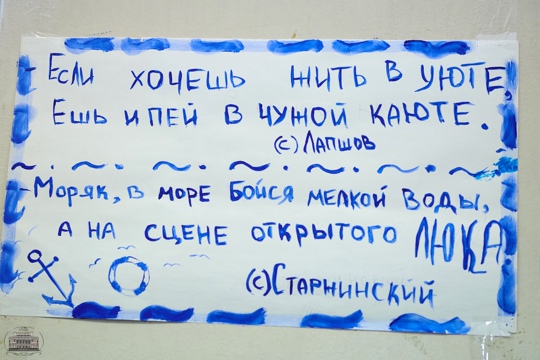 Если хочешь жить в уюте,
Ешь и пей в чужой каюте.
(с) Лапшов
Моряк, в море бойся мелкой воды,
а на сцене открытого люка
(с) Старнинский